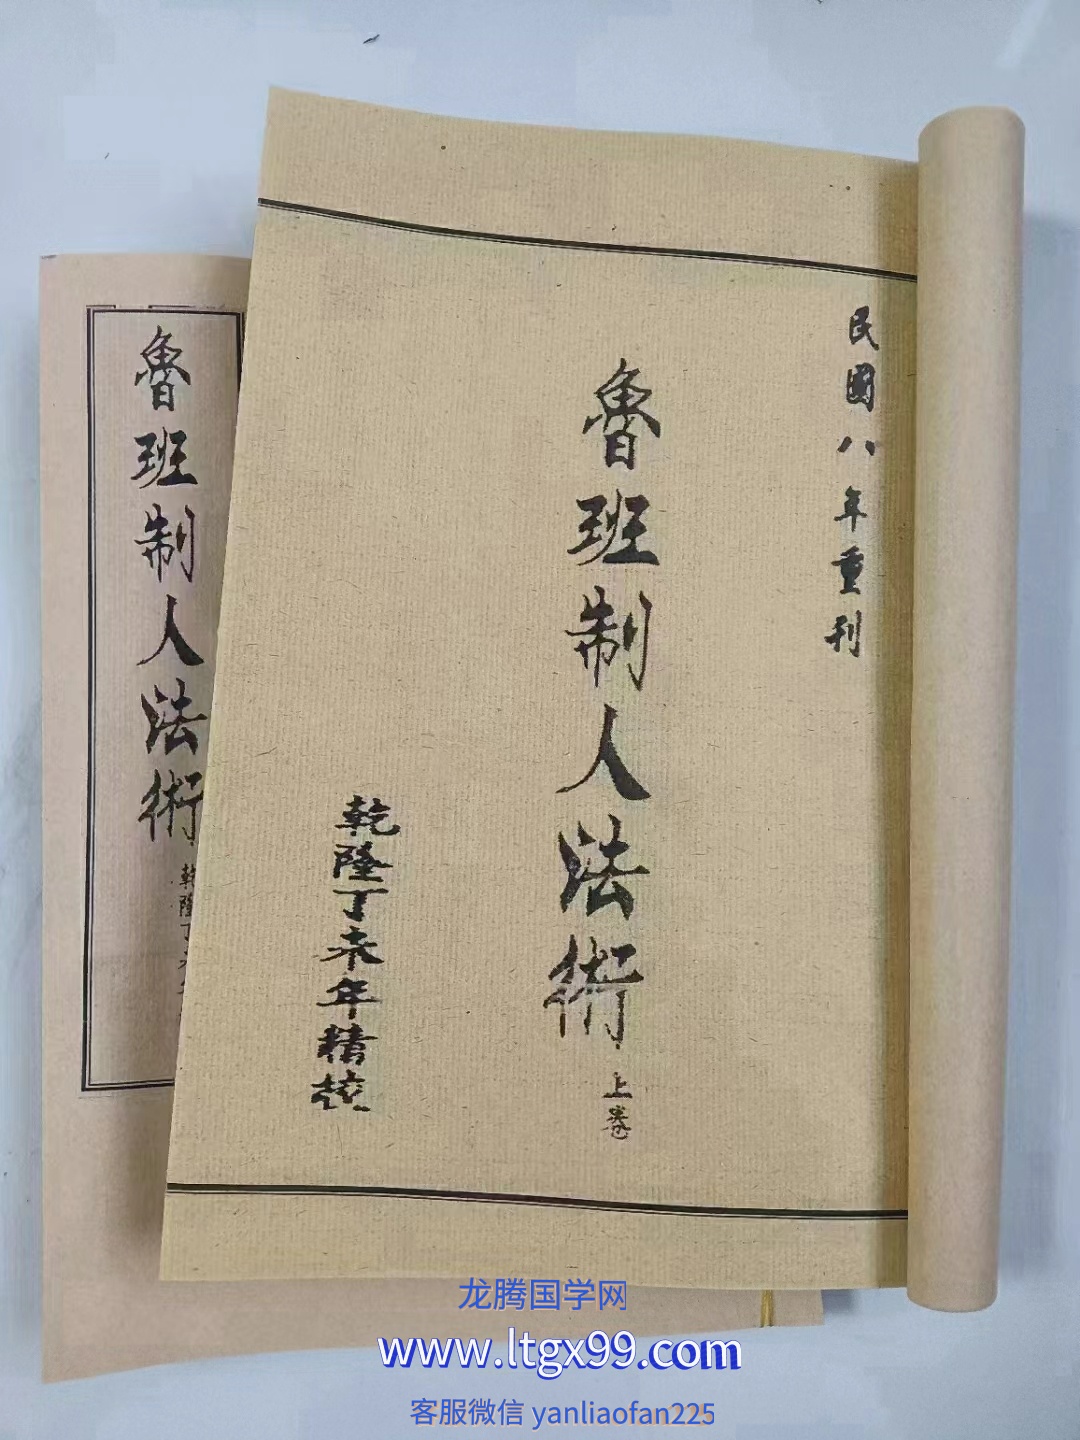 民國八年重刊
魯班制人法術
上卷
乾隆丁未年精校
魯班制人法術
乾隆丁未年
龙腾国学网
www.ltgx99.com
客服微信 yanliaofan225